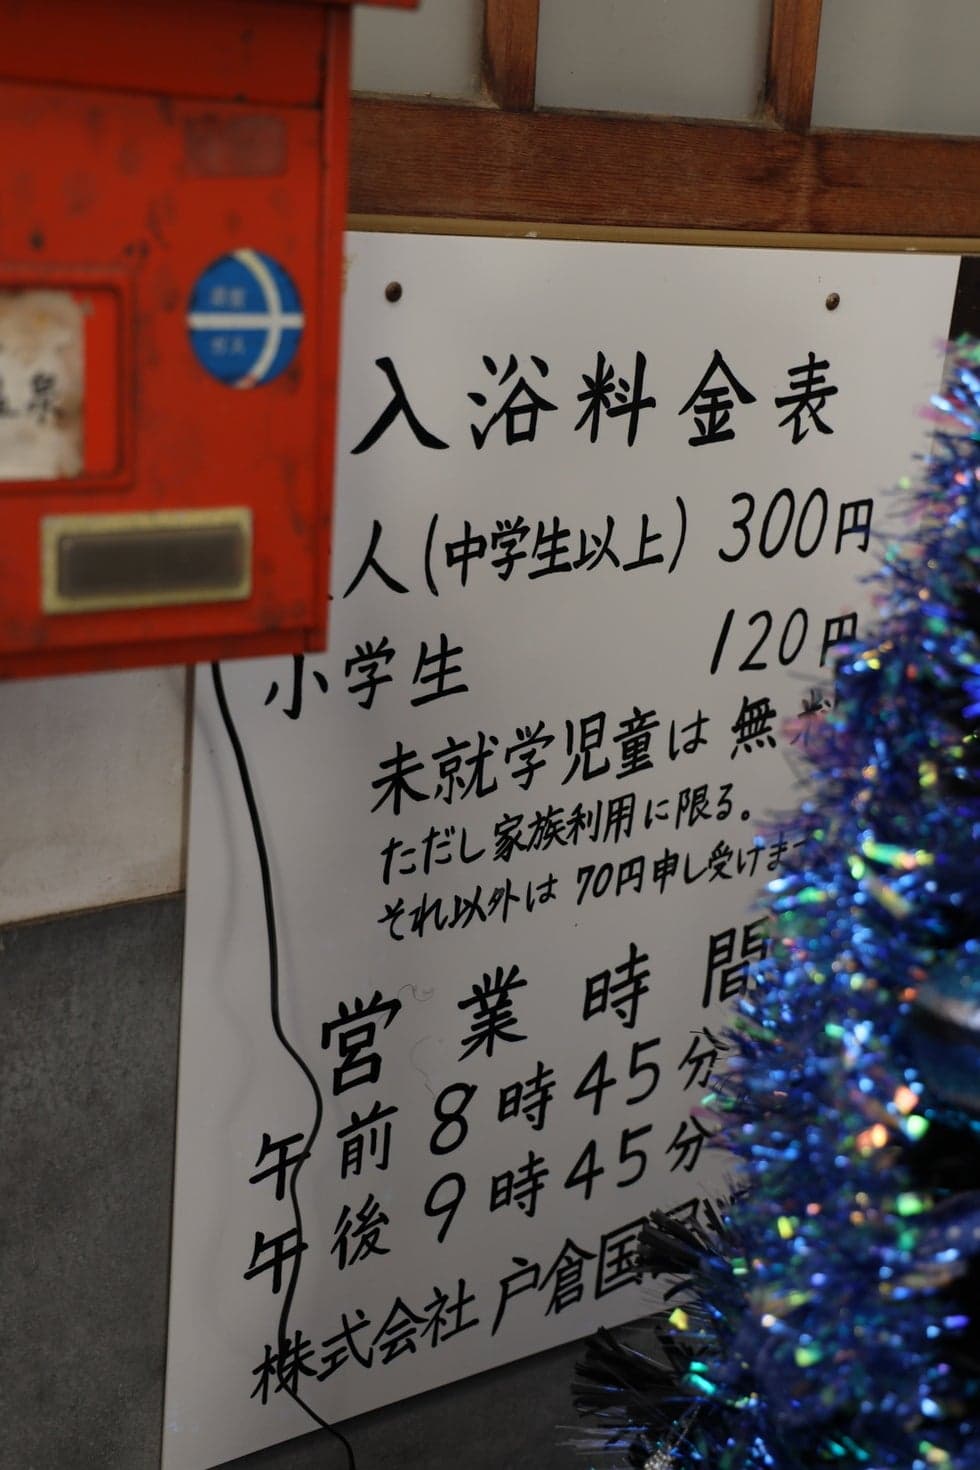 入浴料金表
人(中学生以上) 300円
小学生 120円
未就学児童は無料
ただし家族利用に限る。
それ以外は70円申し受けま
営業時間
午前8時45分
午後9時45分
株式会社 戸倉国
泉